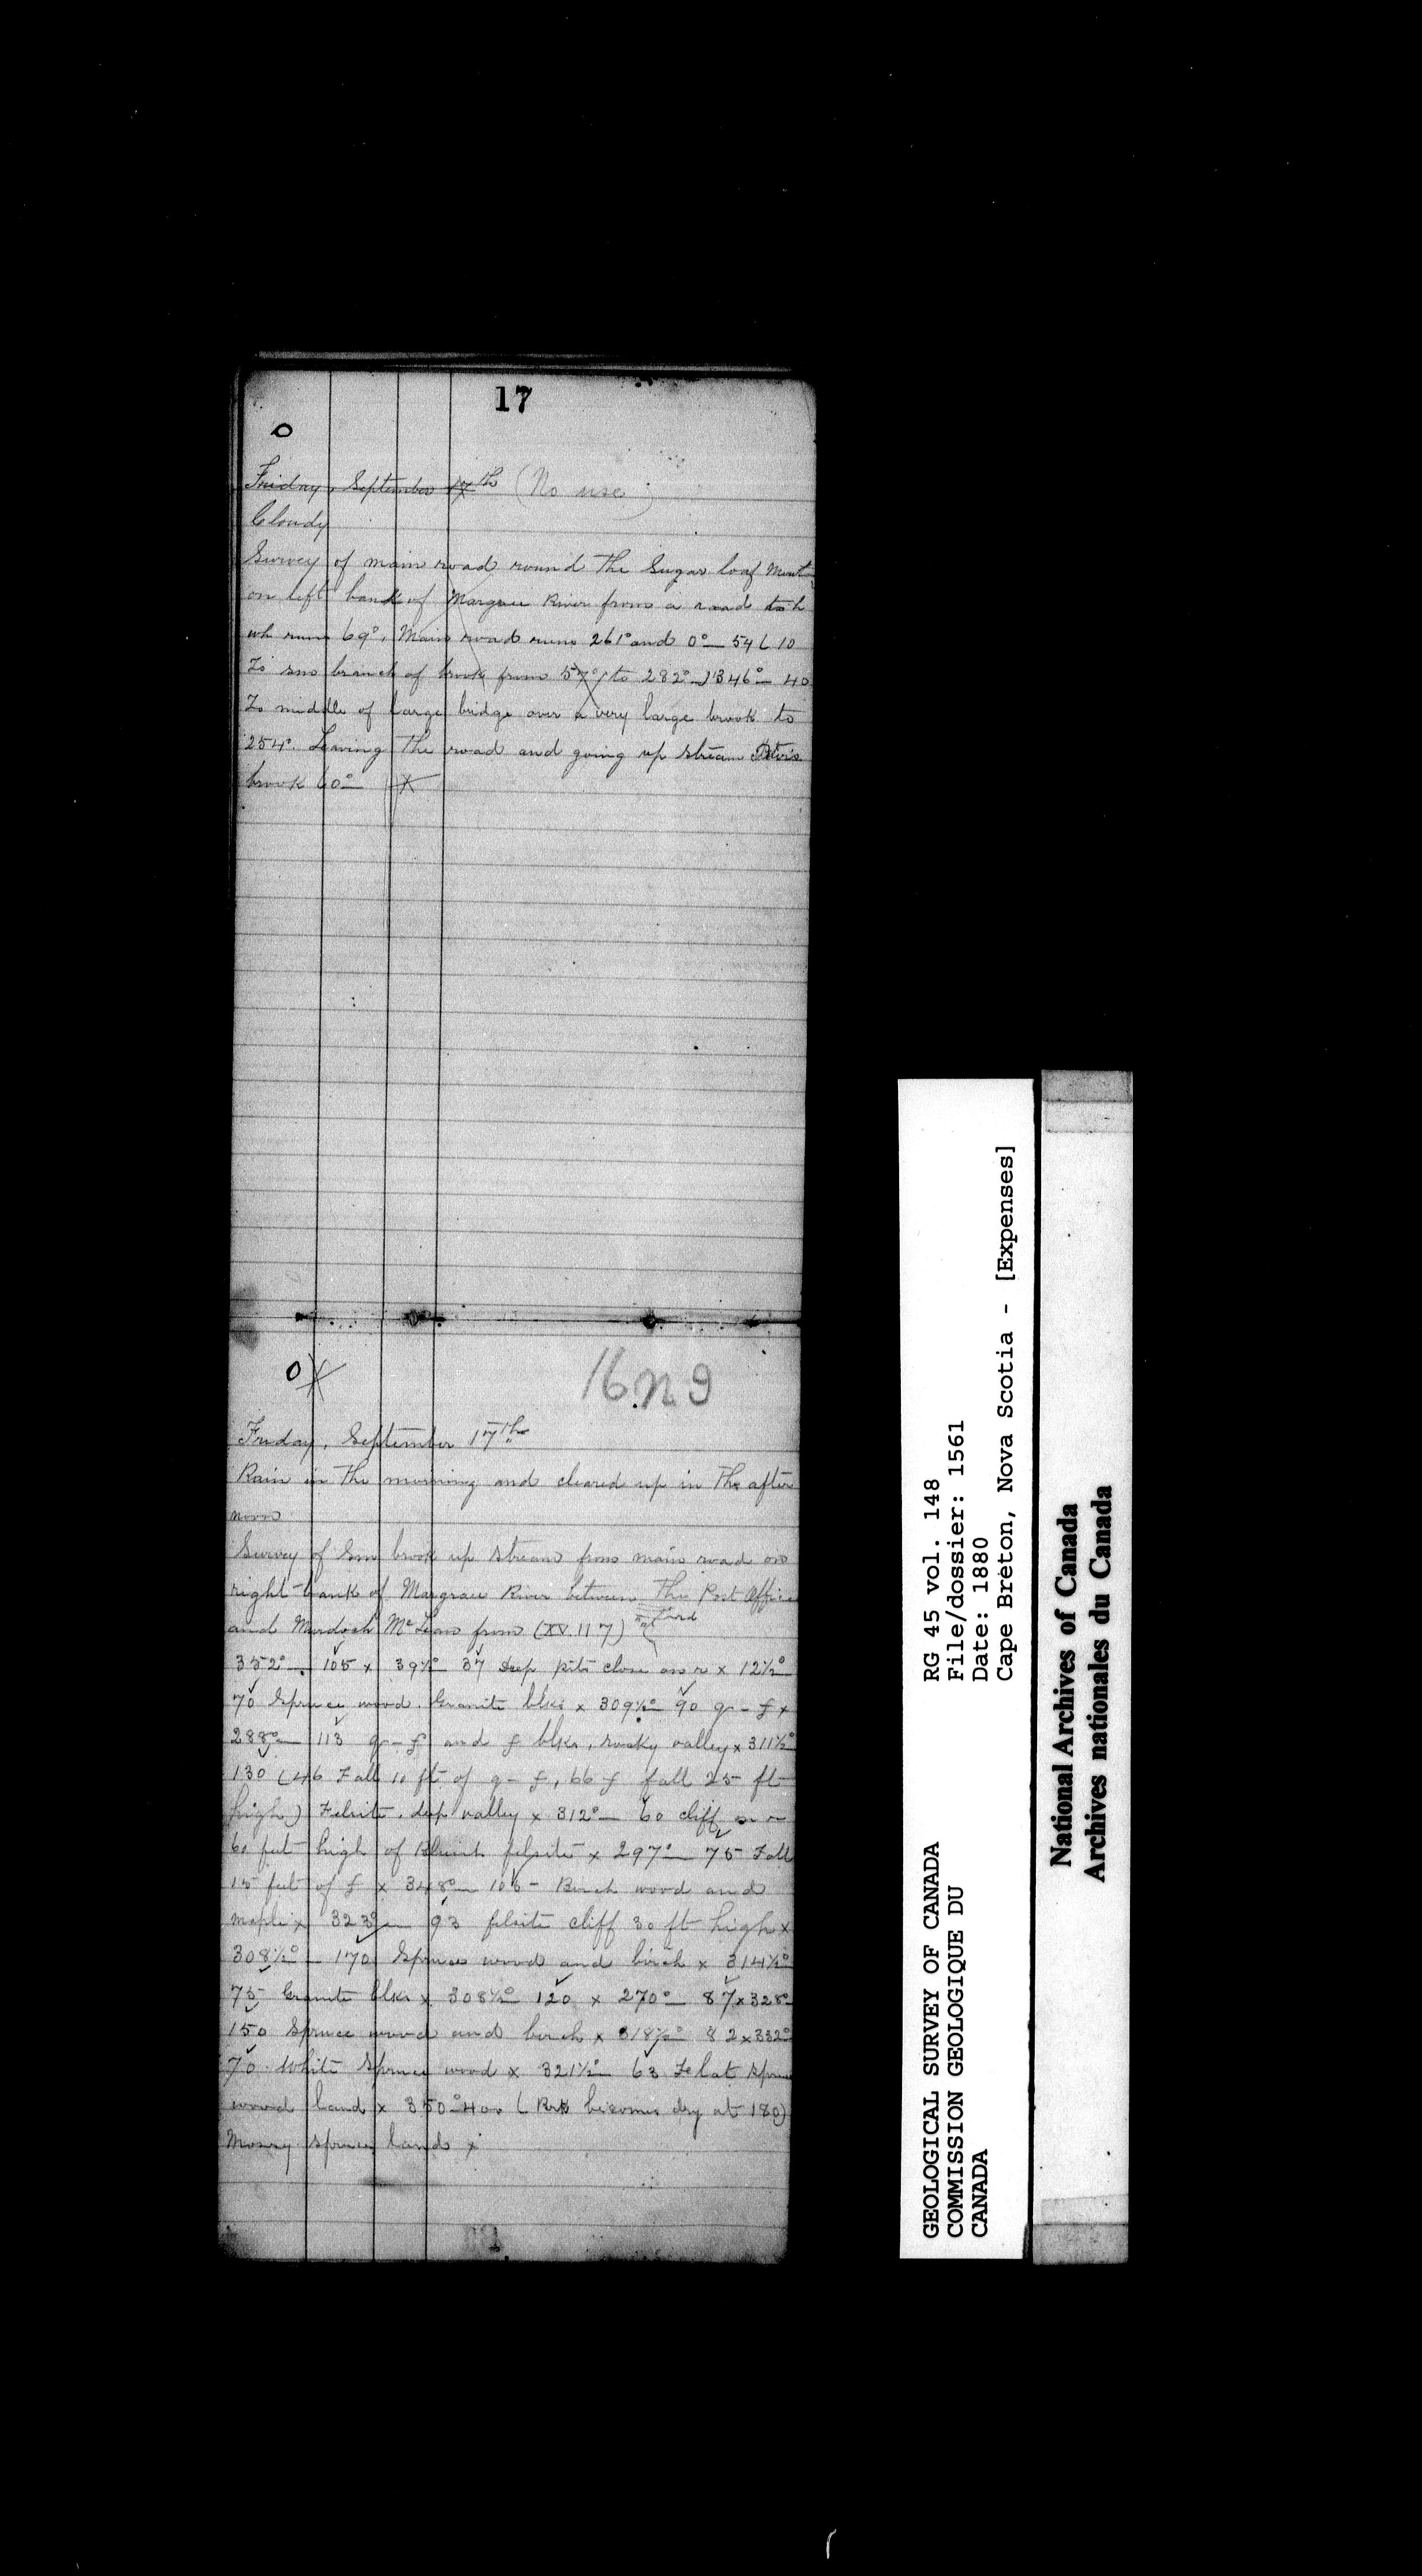 17
0
Friday, September 17th (No use)
Cloudy
Survey of main road round the Sugar loaf Mount
on left bank of Margaree River from a road to h
wh runs 69°. Main road runs 261° and 0° — 54 ( 10
To sm branch of brook from 57° to 282° ) 346° — 40
To middle of large bridge over a very large brook to
254°. Leaving the road and going up stream
brook 60° — x
0 x
16 n 9
Friday, September 17th
Rain in the morning and cleared up in the after
noon
Survey of sm brook up stream from main road on
right bank of Margaree River between the Post Office
and Murdoch McLean from (XV. 117)
352° — 105 x 39½° 37 Deep pits close on r x 12½°
70 Spruce wood. Granite blks x 309½° 90 gr - f x
288° — 113 gr - f and f blks, rocky valley x 311½°
130 (46 Fall 10 ft of g - f, 66 f fall 25 ft
high) Felsite. deep valley x 312° — 60 cliff on r
60 feet high of felsite x 297° — 75 Fall
15 feet of f x 348° — 105 - Birch wood and
maple x 323° — 93 felsite cliff 30 ft high x
308½° — 170 Spruce wood and birch x 314½°
75 Granite blks x 308½° 120 x 270° — 87 x 328°
150 Spruce wood and birch x 318½° 82 x 332°
70 White Spruce wood x 321½° 63 Flat spruce
wood land x 350° 400 ( Brk becomes dry at 180)
Mossy spruce land x
GEOLOGICAL SURVEY OF CANADA
COMMISSION GEOLOGIQUE DU
CANADA
RG 45 vol. 148
File/dossier: 1561
Date: 1880
Cape Breton, Nova Scotia - [Expenses]
National Archives of Canada
Archives nationales du Canada